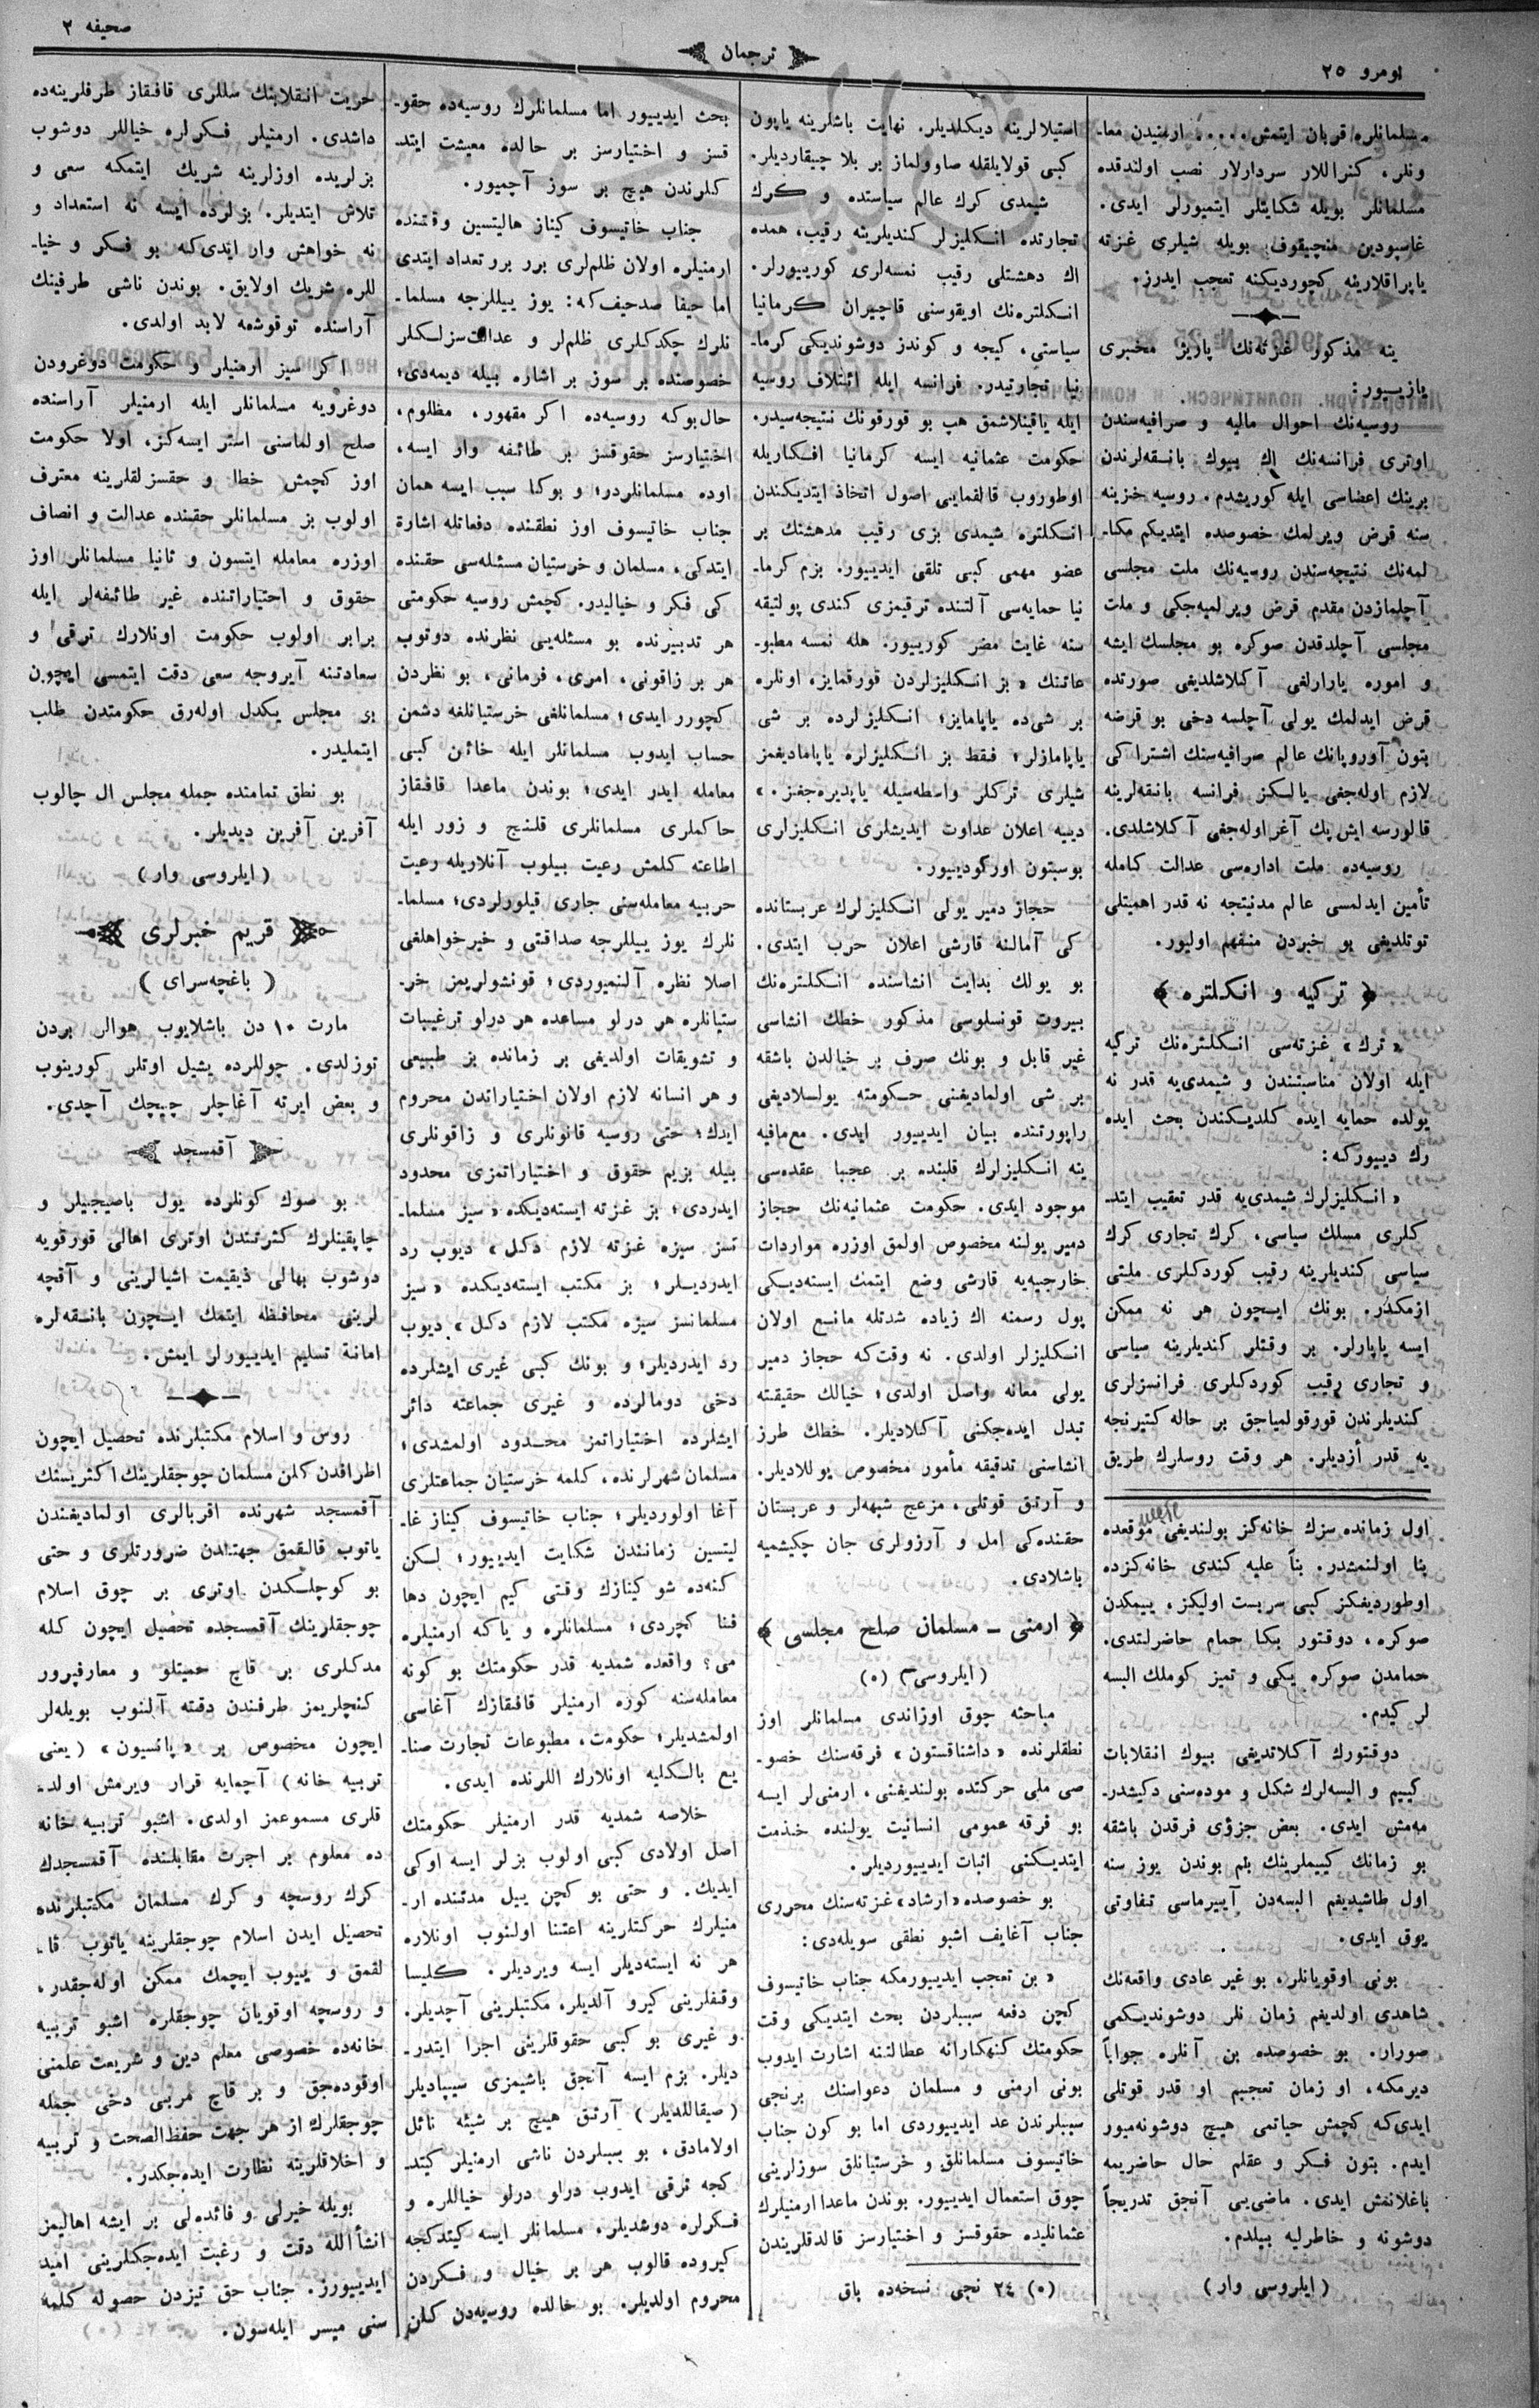 نومرو ٢٥
ترجمان
صحیفه ٢
مسلمانلره قربان ایتمش..... ارمنیدن معا-
ونلر، کنراللار سردارلار نصب اولندقده
مسلمانلر بویله شکایتلر ایتمیورلر ایدی.
غاسپودین منچیقوف بویله شیلری غزته
یاپراقلارینه کچوردیکنه تعجب ایدرز.
ینه مذکور غزته‌نك پاریژ مخبری
یازییور:
روسیه‌نك احوال مالیه و صرافیه‌سندن
اوتری فرانسه‌نك اك بیوك بانقه‌لرندن
برینك اعضاسی ایله کوریشدم. روسیه خزینه
سنه قرض ویرلمك خصوصده ایتدیکم مکا-
لمه‌نك نتیجه‌سندن روسیه‌نك ملت مجلسی
آچلمازدن مقدم قرض ویرلمیه‌جکی و ملت
مجلسی آچلدقدن صوکره بو مجلسك ایشه
و اموره یارارلغی آکلاشلدیغی صورتده
قرض ایدلمك یولی آچلسه دخی بو قرضه
بتون آوروپانك عالم صرافیه‌سنك اشتراکی
لازم اوله‌جغی یالکز فرانسه بانقه‌لرینه
قالورسه ایش پك آغر اوله‌جغی آکلاشلدی.
روسیه‌ده ملت اداره‌سی عدالت کامله
تأمین ایدلمسی عالم مدنیتجه نه قدر اهمیتلی
توتلدیغی بو خبردن منفهم اولیور.
﴿ ترکیه و انکلتره ﴾
«ترك» غزته‌سی انکلتره‌نك ترکیه
ایله اولان مناسبتندن و شیمدی‌یه قدر نه
یولده حمایه ایده کلدیکندن بحث ایده
رك دییورکه:
«انکلیزلرك شیمدی‌یه قدر تعقیب ایتد-
کلری مسلك سیاسی، کرك تجاری کرك
سیاسی کندیلرینه رقیب کوردکلری ملتی
ازمکدر. بونك ایچون هر نه ممکن
ایسه یاپارلر. بر وقتلر کندیلرینه سیاسی
و تجاری رقیب کوردکلری فرانسزلری
کندیلرندن قورقولمیاجق بر حاله کتیرنجه
یه قدر أزدیلر. هر وقت روسلرك طریق
اول زمانده سزك خانه‌کز بولندیغی موقعده
بنا اولنمشدر. بناً علیه کندی خانه‌کزده
اوطوردیغکز کبی سربست اولیکز، ییمکدن
صوکره، دوقتور بکا حمام حاضرلتدی.
حمامدن صوکره یکی و تمیز کوملك البسه
لر کیدم.
دوقتورك آکلاتدیغی بیوك انقلابات
کییم و البسه‌لرك شکل و موده‌سنی دکیشدر-
مه‌مش ایدی. بعض جزؤی فرقدن باشقه
بو زمانك کییملرینك بلم بوندن یوز سنه
اول طاشیدیغم البسه‌دن آییرماسی تفاوتی
یوق ایدی.
بونی اوقویانلر، بو غیر عادی واقعه‌نك
شاهدی اولدیغم زمان نلر دوشوندیکمی
صورار. بو خصوصده بن آنلره جواباً
دیرمکه، او زمان تعجبیم او قدر قوتلی
ایدی‌که کچمش حیاتمی هیچ دوشونه‌میور
ایدم. بتون فکر و عقلم حال حاضریمه
باغلانمش ایدی. ماضی‌یی آنجق تدریجاً
دوشونه و خاطرلیه بیلدم.
(ایلروسی وار)
استیلالرینه دیکلدیلر. نهایت باشلرینه یاپون
کبی قولایلقله صاوولماز بر بلا چیقاردیلر.
شیمدی کرك عالم سیاستده و کرك
تجارتده انکلیزلر کندیلرینه رقیب، همده
اك دهشتلی رقیب نمسه‌لری کورییورلر.
انکلتره‌نك اویقوسنی قاچیران کرمانیا
سیاستی، کیجه و کوندز دوشوندیکی کرما-
نیا تجارتیدر. فرانسه ایله ائتلاف روسیه
ایله یاقینلاشمق هپ بو قورقونك نتیجه‌سیدر.
حکومت عثمانیه ایسه کرمانیا افکاریله
اوطوروب قالقمایی اصول اتخاذ ایتدیکندن
انکلتره شیمدی بزی رقیب مدهشنك بر
عضو مهمی کبی تلقی ایدییور. بزم کرما-
نیا حمایه‌سی آلتنده ترقیمزی کندی پولتیقه
سنه غایت مضر کورییور. هله نمسه مطبو-
عاتنك «بز انکلیزلردن قورقمایز، اونلره
بر شی‌ده یاپامایز؛ انکلیزلرده بر شی
یاپامازلر؛ فقط بز انکلیزلره یاپامادیغمز
شیلری ترکلر واسطه‌سیله یاپدیره‌جغز.»
دییه اعلان عداوت ایدیشلری انکلیزلری
بوسبتون اورکودییور.
حجاز دمیر یولی انکلیزلرك عربستانده
کی آمالنه قارشی اعلان حرب ایتدی.
بو یولك بدایت انشاسنده انکلتره‌نك
بیروت قونسلوسی مذکور خطك انشاسی
غیر قابل و بونك صرف بر خیالدن باشقه
بر شی اولمادیغنی حکومته یوللادیغی
راپورتنده بیان ایدییور ایدی. مع‌مافیه
ینه انکلیزلرك قلبنده بر عجبا عقده‌سی
موجود ایدی. حکومت عثمانیه‌نك حجاز
دمیر یولنه مخصوص اولمق اوزره مواردات
خارجییه‌یه قارشی وضع ایتمك ایسته‌دیکی
پول رسمنه اك زیاده شدتله مانع اولان
انکلیزلر اولدی. نه وقت‌که حجاز دمیر
یولی معانه واصل اولدی؛ خیالك حقیقته
تبدل ایده‌جکنی آکلادیلر. خطك طرز
انشاسنی تدقیقه مأمور مخصوص یوللادیلر.
و آرتق قوتلی، مزعج شبهه‌لر و عربستان
حقنده‌کی امل و آرزولری جان چکیشمیه
باشلادی.
﴿ ارمنی ــ مسلمان صلح مجلسی ﴾
(ایلروسی) (٥)
مباحثه چوق اوزاندی مسلمانلر اوز
نطقلرنده «داشناقستون» فرقه‌سنك خصو-
صی ملی حرکتده بولندیغنی، ارمنی‌لر ایسه
بو فرقه عمومی انسانیت یولنده خدمت
ایتدیکنی اثبات ایدییوردیلر.
بو خصوصده «ارشاد» غزته‌سنك محرری
جناب آغایف اشبو نطقی سویله‌دی:
«بن تعجب ایدییورمکه جناب خاتیسوف
کچن دفعه سببلردن بحث ایتدیکی وقت
حکومتك کنهکارانه عطالتنه اشارت ایدوب
بونی ارمنی و مسلمان دعواسنك برنجی
سببلرندن عد ایدییوردی اما بو کون جناب
خاتیسوف مسلمانلق و خرستیانلق سوزلرینی
چوق استعمال ایدییور. بوندن ماعدا ارمنیلرك
عثمانلیده حقوقسز و اختیارسز قالدقلریندن
(٥) ٢٤ نجی نسخه‌ده باق
بحث ایدییور اما مسلمانلرك روسیه‌ده حقو-
قسز و اختیارسز بر حالده معیشت ایتد-
کلرندن هیچ بر سوز آچمیور.
جناب خاتیسوف کیناز هالیتسین وقتنده
ارمنیلره اولان ظلم‌لری برر برر تعداد ایتدی
اما حیفا صدحیف‌که: یوز ییللرجه مسلما-
نلرك چکدکلری ظلم‌لر و عدالت‌سزلکلر
خصوصنده بر سوز بر اشاره بیله دیمه‌دی؛
حال‌بوکه روسیه‌ده اکر مقهور، مظلوم،
اختیارسز حقوقسز بر طائفه وار ایسه،
اوده مسلمانلردر؛ و بوکا سبب ایسه همان
جناب خاتیسوف اوز نطقنده دفعاتله اشارة
ایتدکی، مسلمان و خرستیان مسئله‌سی حقنده
کی فکر و خیالیدر. کچمش روسیه حکومتی
هر تدبیرنده بو مسئله‌یی نظرنده دوتوب
هر بر زاقونی، امری، فرمانی، بو نظردن
کچورر ایدی؛ مسلمانلغی خرستیانلغه دشمن
حساب ایدوب مسلمانلر ایله خائن کبی
معامله ایدر ایدی؛ بوندن ماعدا قافقاز
حاکملری مسلمانلری قلنج و زور ایله
اطاعته کلمش رعیت بیلوب آنلاریله رعیت
حربیه معامله‌سنی جاری قیلورلردی؛ مسلما-
نلرك یوز ییللرجه صداقتی و خیرخواهلغی
اصلا نظره آلنمیوردی؛ قونشولریمز خر-
ستیانلره هر درلو مساعده هر درلو ترغیبات
و تشویقات اولدیغی بر زمانده بز طبیعی
و هر انسانه لازم اولان اختیاراتدن محروم
ایدك؛ حتی روسیه قانونلری و زاقونلری
بیله بزیم حقوق و اختیاراتمزی محدود
ایدردی؛ بز غزته ایسته‌دیکده «سیز مسلما-
نسز سیزه غزته لازم دکل» دیوب رد
ایدردیلر؛ بز مکتب ایسته‌دیکده «سیز
مسلمانسز سیزه مکتب لازم دکل» دیوب
رد ایدردیلر؛ و بونك کبی غیری ایشلرده
دخی دومالرده و غیری جماعته دائر
ایشلرده اختیاراتمز محدود اولمشدی؛
مسلمان شهرلرنده، کلمه خرستیان جماعتلری
آغا اولوردیلر؛ جناب خاتیسوف کیناز غا-
لیتسین زمانندن شکایت ایدییور؛ لکن
کنه‌ده شو کینازك وقتی کیم ایچون دها
فنا کچردی؛ مسلمانلره و یاکه ارمنیلره
می؟ واقعده شمدیه قدر حکومتك بو کونه
معامله‌سنه کوره ارمنیلر قافقازك آغاسی
اولمشدیلر؛ حکومت، مطبوعات تجارت صنا-
یع بالکلیه اونلارك اللرنده ایدی.
خلاصه شمدیه قدر ارمنیلر حکومتك
اصل اولادی کبی اولوب بزلر ایسه اوکی
ایدیك. و حتی بو کچن ییل مدتنده ار-
منیلرك حرکتلرینه اعتنا اولنوب اونلاره
هر نه ایسته‌دیلر ایسه ویردیلر. کلیسا
وقفلرینی کیرو آلدیلر، مکتبلرینی آچدیلر.
و غیری بو کبی حقوقلرینی اجرا ایتدر-
دیلر. بزم ایسه آنجق باشیمزی سیپادیلر
(صیقاللدیلر) آرتق هیچ بر شیئه نائل
اولامادق، بو سببلردن ناشی ارمنیلر کیتد-
کجه ترقی ایدوب درلو درلو خیاللره و
فکرلره دوشدیلر، مسلمانلر ایسه کیتدکجه
کیروده قالوب هر بر خیال و فکردن
محروم اولدیلر. بو حالده روسیه‌دن کلن
حریت انقلابنك سللری قافقاز طرفلرینه‌ده
داشدی. ارمنیلر فکرلره خیاللر دوشوب
بزلریده اوزلرینه شریك ایتمکه سعی و
تلاش ایتدیلر. بزلرده ایسه نه استعداد و
نه خواهش وار ایدی‌که بو فکر و خیا-
للره شریك اولایق. بوندن ناشی طرفینك
آراسنده توقوشمه لابد اولدی.
اکر سیز ارمنیلر و حکومت دوغرودن
دوغرویه مسلمانلر ایله ارمنیلر آراسنده
صلح اولماسنی استر ایسه‌کز، اولا حکومت
اوز کچمش خطا و حقسزلقلرینه معترف
اولوب بز مسلمانلر حقنده عدالت و انصاف
اوزره معامله ایتسون و ثانیا مسلمانلر اوز
حقوق و اختیاراتنده غیر طائفه‌لر ایله
برابر اولوب حکومت اونلارك ترقی و
سعادتنه آیروجه سعی دقت ایتمسی ایچون
بز مجلس یکدل اوله‌رق حکومتدن طلب
ایتملیدر.
بو نطق تمامنده جمله مجلس ال چالوب
آفرین آفرین دیدیلر.
(ایلروسی وار)
قریم خبرلری
(باغچه‌سرای)
مارت ١٠ دن باشلایوب هوالر بردن
توزلدی. جوللرده یشیل اوتلر کورینوب
و بعض ایرته آغاچلر چیچك آچدی.
آقمسجد
بو صوك کونلرده یول باصیجیلر و
چاپقینلرك کثرتندن اوتری اهالی قورقویه
دوشوب بهالی ذیقیمت اشیالرینی و آقچه
لرینی محافظه ایتمك ایچون بانقه‌لره
امانة تسلیم ایدییورلر ایمش.
روس و اسلام مکتبلرنده تحصیل ایچون
اطرافدن کلن مسلمان چوجقلرینك اکثریسنك
آقمسجد شهرنده اقربالری اولمادیغندن
یاتوب قالقمق جهتندن ضرورتلری و حتی
بو کوچلکدن اوتری بر چوق اسلام
چوجقلرینك آقمسجده تحصیل ایچون کله
مدکلری بر قاچ حمیتلو و معارفپرور
کنچلریمز طرفندن دقته آلنوب بویله‌لر
ایچون مخصوص بر «پانسیون» (یعنی
تربیه خانه) آچمایه قرار ویرمش اولد-
قلری مسموعمز اولدی. اشبو تربیه خانه
ده معلوم بر اجرت مقابلنده آقمسجدك
کرك روسچه و کرك مسلمان مکتبلرنده
تحصیل ایدن اسلام چوجقلرینه یاتوب قا-
لقمق و ییوب ایچمك ممکن اوله‌جقدر،
و روسچه اوقویان چوجقلره اشبو تربیه
خانه‌ده خصوصی معلم دین و شریعت علمنی
اوقوده‌جق و بر قاچ مربی دخی جمله
چوجقلرك از هر جهت حفظ‌الصحت و تربیه
و اخلاقلرینه نظارت ایده‌جکدر.
بویله خیرلی و فائده‌لی بر ایشه اهالیمز
انشأالله دقت و رغبت ایده‌جکلرینی امید
ایدییورز. جناب حق تیزدن حصوله کلمه
سنی میسر ایله‌سون.